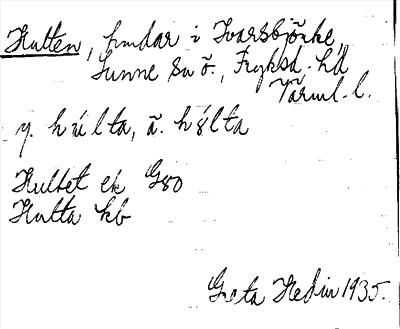 Hulten, hmdar i Ivarsbjörke,
Sunne sn ö., Fryksd. hd
Värml. l.
y. húlta, ä. hólta
Hultet ek G80
Hulta kb
Greta Hedin 1935.